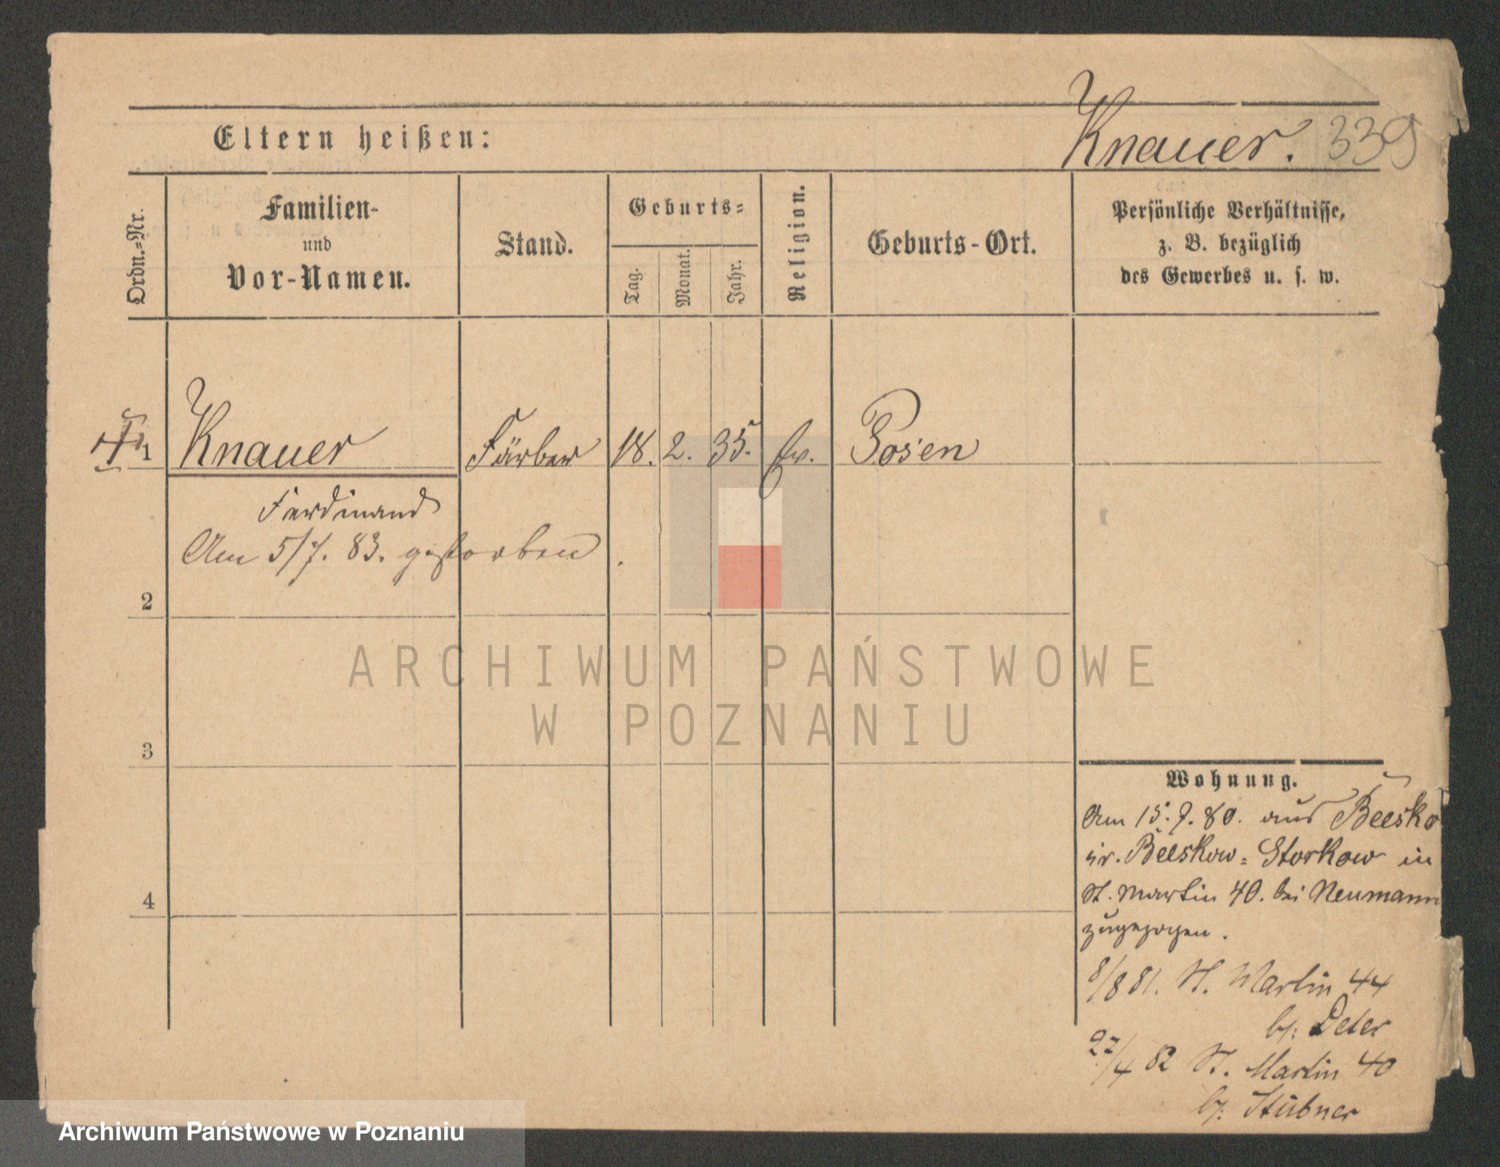 Eltern heißen:
Knauer. 339
Ordn.=Nr.
Familien-
und
Vor-Namen.
Stand.
Geburts=
Tag.
Monat.
Jahr.
Religion.
Geburts-Ort.
Persönliche Verhältnisse,
z. B. bezüglich
des Gewerbes u. s. w.
1 Knauer Färber 18. 2. 35. ev. Posen
Ferdinand
Am 5/7. 83. gestorben.
2
3
4
Wohnung.
Am 15. 9. 80. aus Beesko
Kr. Beeskow=Storkow in
St. Martin 40. bei Neumann
zugezogen.
8/8 81. St. Martin 44
b/. Peter
27/4 82 St. Martin 40
b/. Stübner
ARCHIWUM PAŃSTWOWE
W POZNANIU
Archiwum Państwowe w Poznaniu